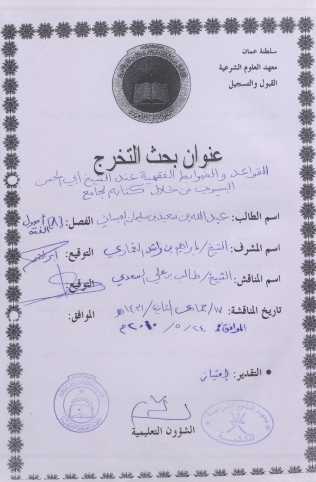 سلطنة عمان
معهد العلوم الشرعية
القبول والتسجيل
عنوان بحث التخرج
القواعد والضوابط الفقهية عند الشيخ أبي الحسن
البسيوي من خلال كتابه الجامع
اسم الطالب: عبدالله بن سعيد بن سليمان الفصل: [٨] أصول الفقه
اسم المشرف: الشيخ/ إبراهيم بن راشد الغماري التوقيع:
اسم المناقش: الشيخ/ طالب بن علي السعدي التوقيع:
تاريخ المناقشة: ١٧/ جمادى الثانية/ ١٤٣١هـ الموافق:
الموافق ٢٤/ ٥/ ٢٠١٠م
• التقدير: امتياز
الشؤون التعليمية